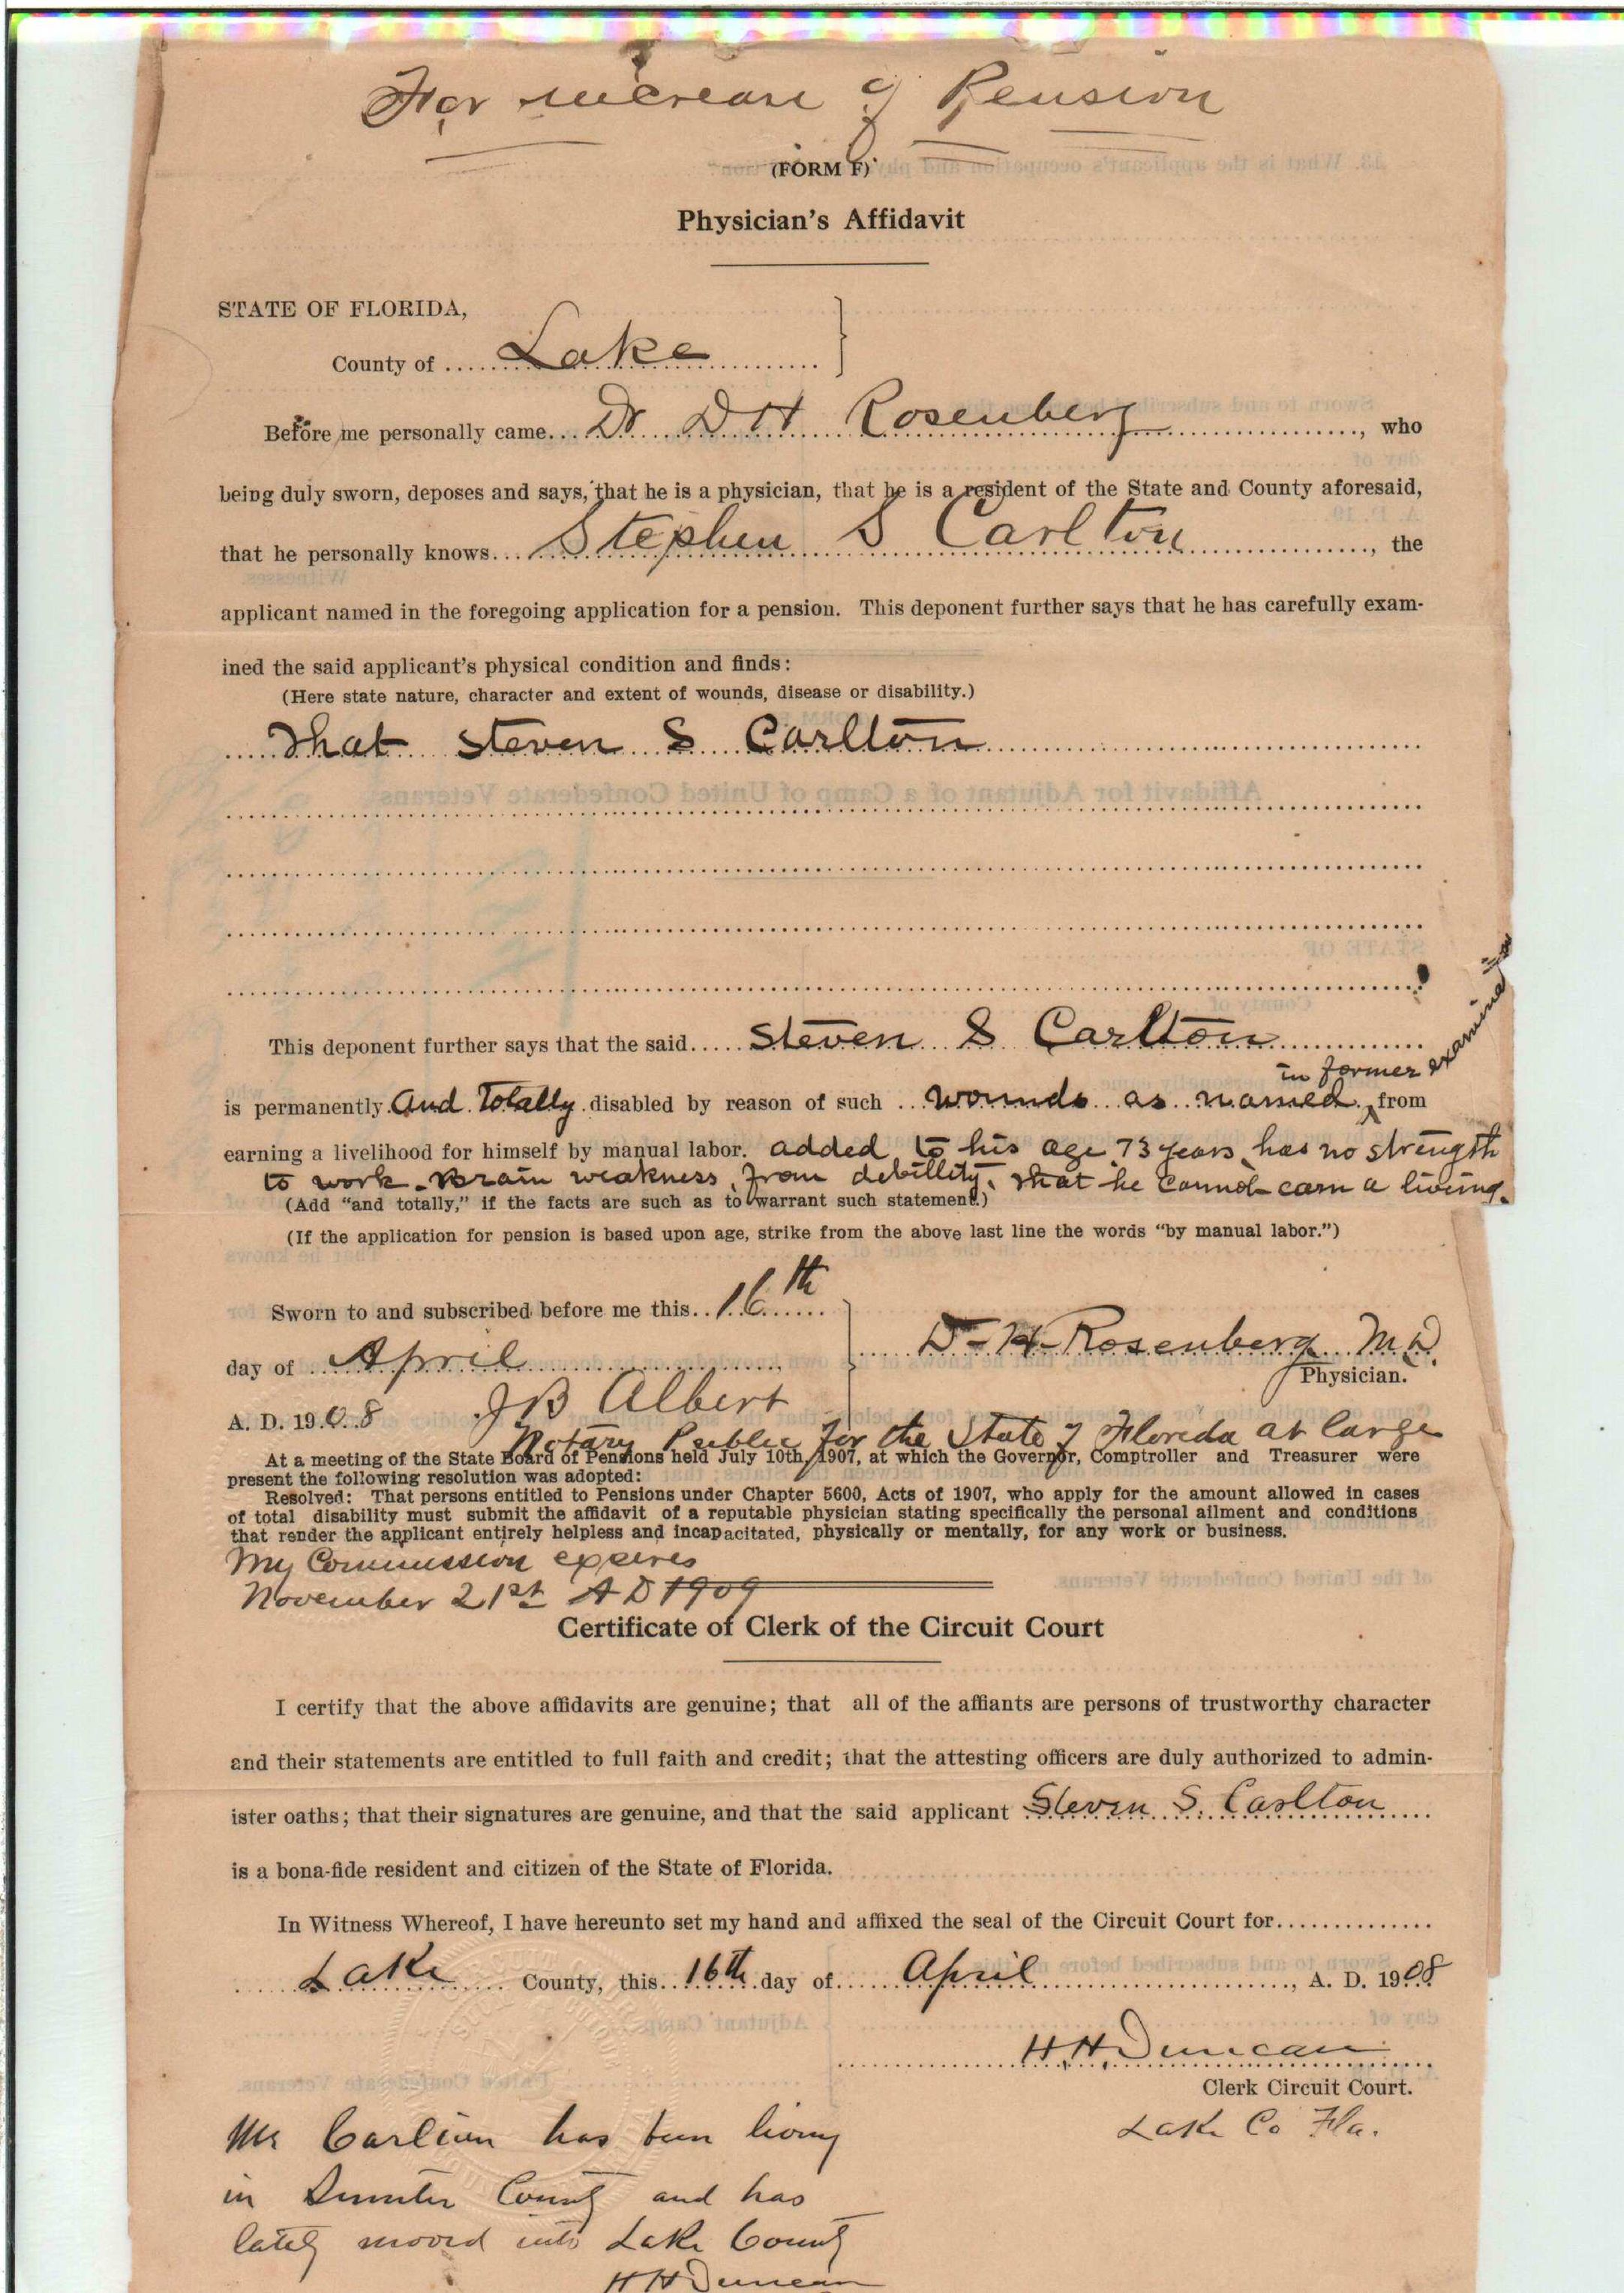 For increase of Pension
(FORM F)
Physician's Affidavit
STATE OF FLORIDA,
County of Lake
Before me personally came Dr D H Rosenberg, who
being duly sworn, deposes and says, that he is a physician, that he is a resident of the State and County aforesaid,
that he personally knows Stephen S Carlton, the
applicant named in the foregoing application for a pension. This deponent further says that he has carefully exam-
ined the said applicant's physical condition and finds:
(Here state nature, character and extent of wounds, disease or disability.)
That Steven S Carlton
This deponent further says that the said Steven S Carlton
in former
is permanently and Totally disabled by reason of such wounds as named from
earning a livelihood for himself by manual labor. added to his age 73 years, has no strength
to work. Brain weakness, from debillity, that he cannot earn a living.
(Add "and totally," if the facts are such as to warrant such statement.)
(If the application for pension is based upon age, strike from the above last line the words "by manual labor.")
Sworn to and subscribed before me this 16th
D-H-Rosenberg M.D.
day of April
Physician.
A. D. 1908 J B Albert
Notary Public for the State of Florida at large
At a meeting of the State Board of Pensions held July 10th, 1907, at which the Governor, Comptroller and Treasurer were
present the following resolution was adopted:
Resolved: That persons entitled to Pensions under Chapter 5600, Acts of 1907, who apply for the amount allowed in cases
of total disability must submit the affidavit of a reputable physician stating specifically the personal ailment and conditions
that render the applicant entirely helpless and incapacitated, physically or mentally, for any work or business.
My Commission expires
November 21st A D 1909
Certificate of Clerk of the Circuit Court
I certify that the above affidavits are genuine; that all of the affiants are persons of trustworthy character
and their statements are entitled to full faith and credit; that the attesting officers are duly authorized to admin-
ister oaths; that their signatures are genuine, and that the said applicant Steven S. Carlton
is a bona-fide resident and citizen of the State of Florida.
In Witness Whereof, I have hereunto set my hand and affixed the seal of the Circuit Court for
Lake County, this 16th day of April, A. D. 1908
H.H. Duncan
Clerk Circuit Court.
Lake Co Fla.
Mr Carlton has been living
in Sumter County and has
lately moved into Lake County
H H Duncan